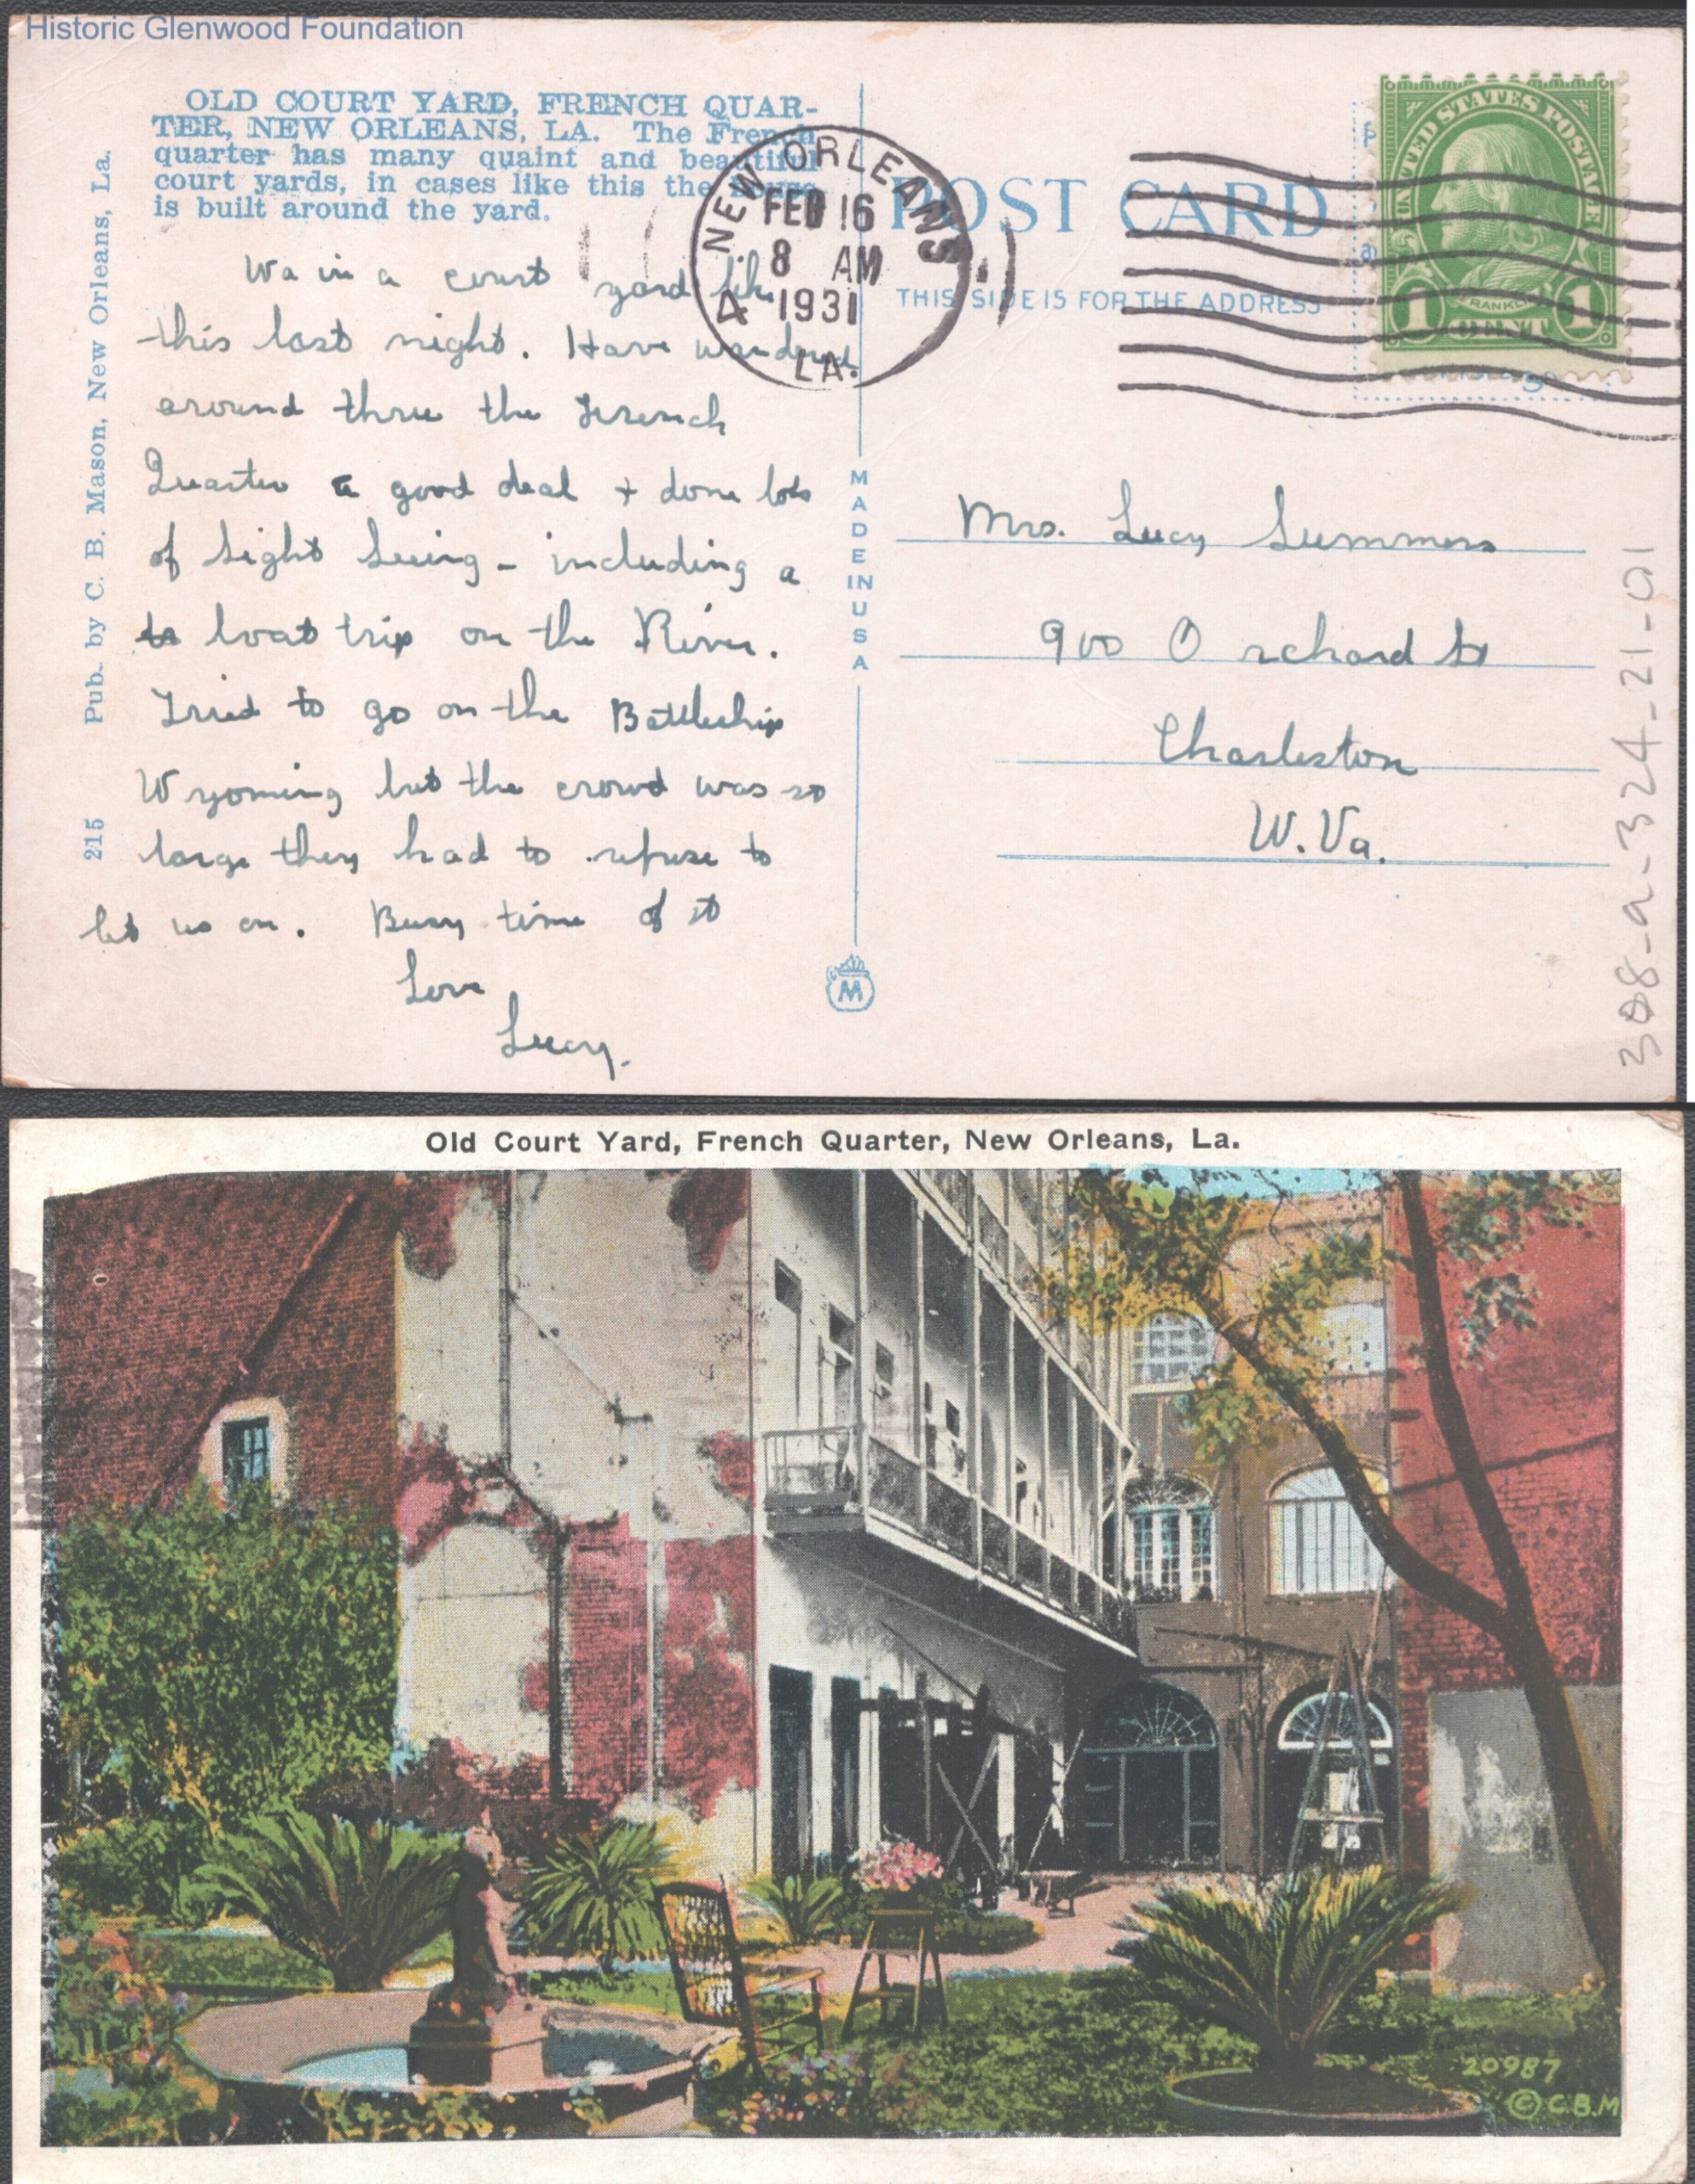 Historic Glenwood Foundation
OLD COURT YARD, FRENCH QUAR-
TER, NEW ORLEANS, LA. The French
quarter has many quaint and beautiful
court yards, in cases like this the house
is built around the yard.
215 Pub. by C. B. Mason, New Orleans, La.
Wa in a court yard like
this last night. Have wandered
around thru the French
Quarter a good deal + done lots
of sight seeing - including a
boat trip on the River.
Tried to go on the Battleship
Wyoming but the crowd was so
large they had to refuse to
let us on. Busy time of it
Love
Lucy.
NEW ORLEANS
FEB 16
8 AM
1931
4
LA.
POST CARD
THIS SIDE IS FOR THE ADDRESS
UNITED STATES POSTAGE
FRANKLIN
1 CENT 1
MADE IN USA
M
Mrs. Lucy Summers
900 Orchard St
Charleston
W. Va.
308-a-324-21-01
Old Court Yard, French Quarter, New Orleans, La.
20987
© C.B.M